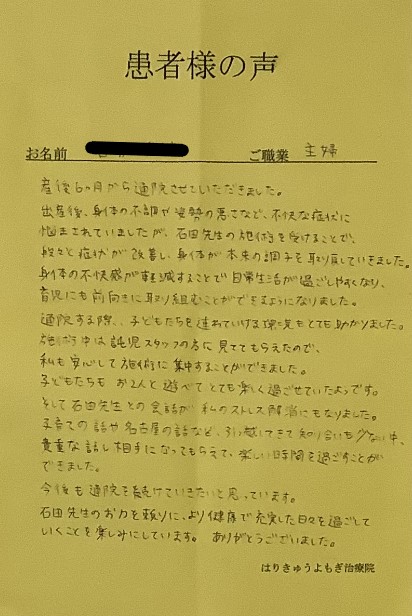 患者様の声
お名前 ご職業 主婦
産後6ヶ月から通院させていただきました。
出産後、身体の不調や姿勢の悪さなど、不快な症状に
悩まされていましたが、石田先生の施術を受けることで、
段々と症状が改善し、身体が本来の調子を取り戻していきました。
身体の不快感が軽減することで日常生活が過ごしやすくなり、
育児にも前向きに取り組むことができるようになりました。
通院する際、子どもたちを連れていける環境もとても助かりました。
施術中は託児スタッフの方に見ててもらえたので、
私も安心して施術に集中することができました。
子どもたちも お2人と遊べてとても楽しく過ごせていたようです。
そして石田先生との会話が私のストレス解消にもなりました。
子育ての話や名古屋の話など、引っ越してきて知り合いも少ない中、
貴重な話し相手になってもらえて、楽しい時間を過ごすことが
できました。
今後も通院を続けていきたいと思っています。
石田先生のお力を頼りに、より健康で充実した日々を過ごして
いくことを楽しみにしています。 ありがとうございました。
はりきゅうよもぎ治療院